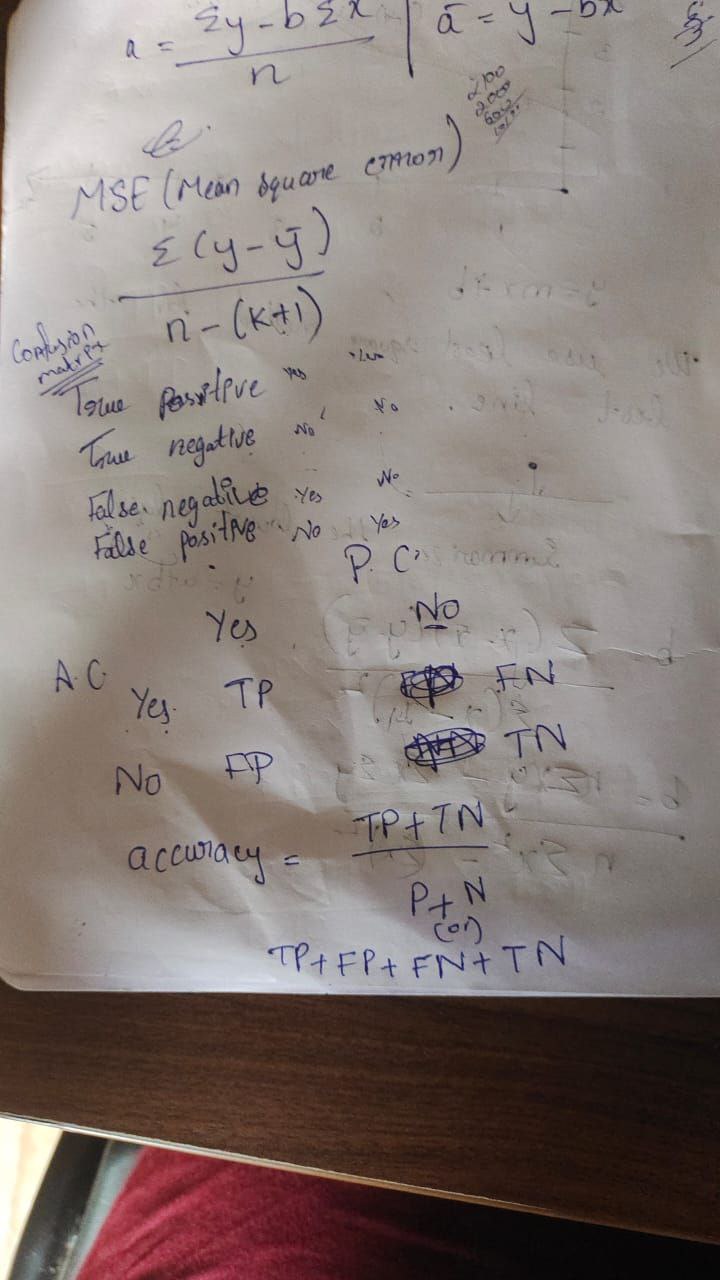 a = Σy - bΣx / n | ā = y - bx
2100
2000
MSE (Mean square error)
Σ(y - ȳ)
n - (k+1)
Confusion matrix
True positive yes
True negative No No
False negative Yes No
False positive No Yes
P. C.
Yes No
A.C. Yes TP FN
No FP TN
accuracy = TP + TN
P + N
(or)
TP + FP + FN + TN